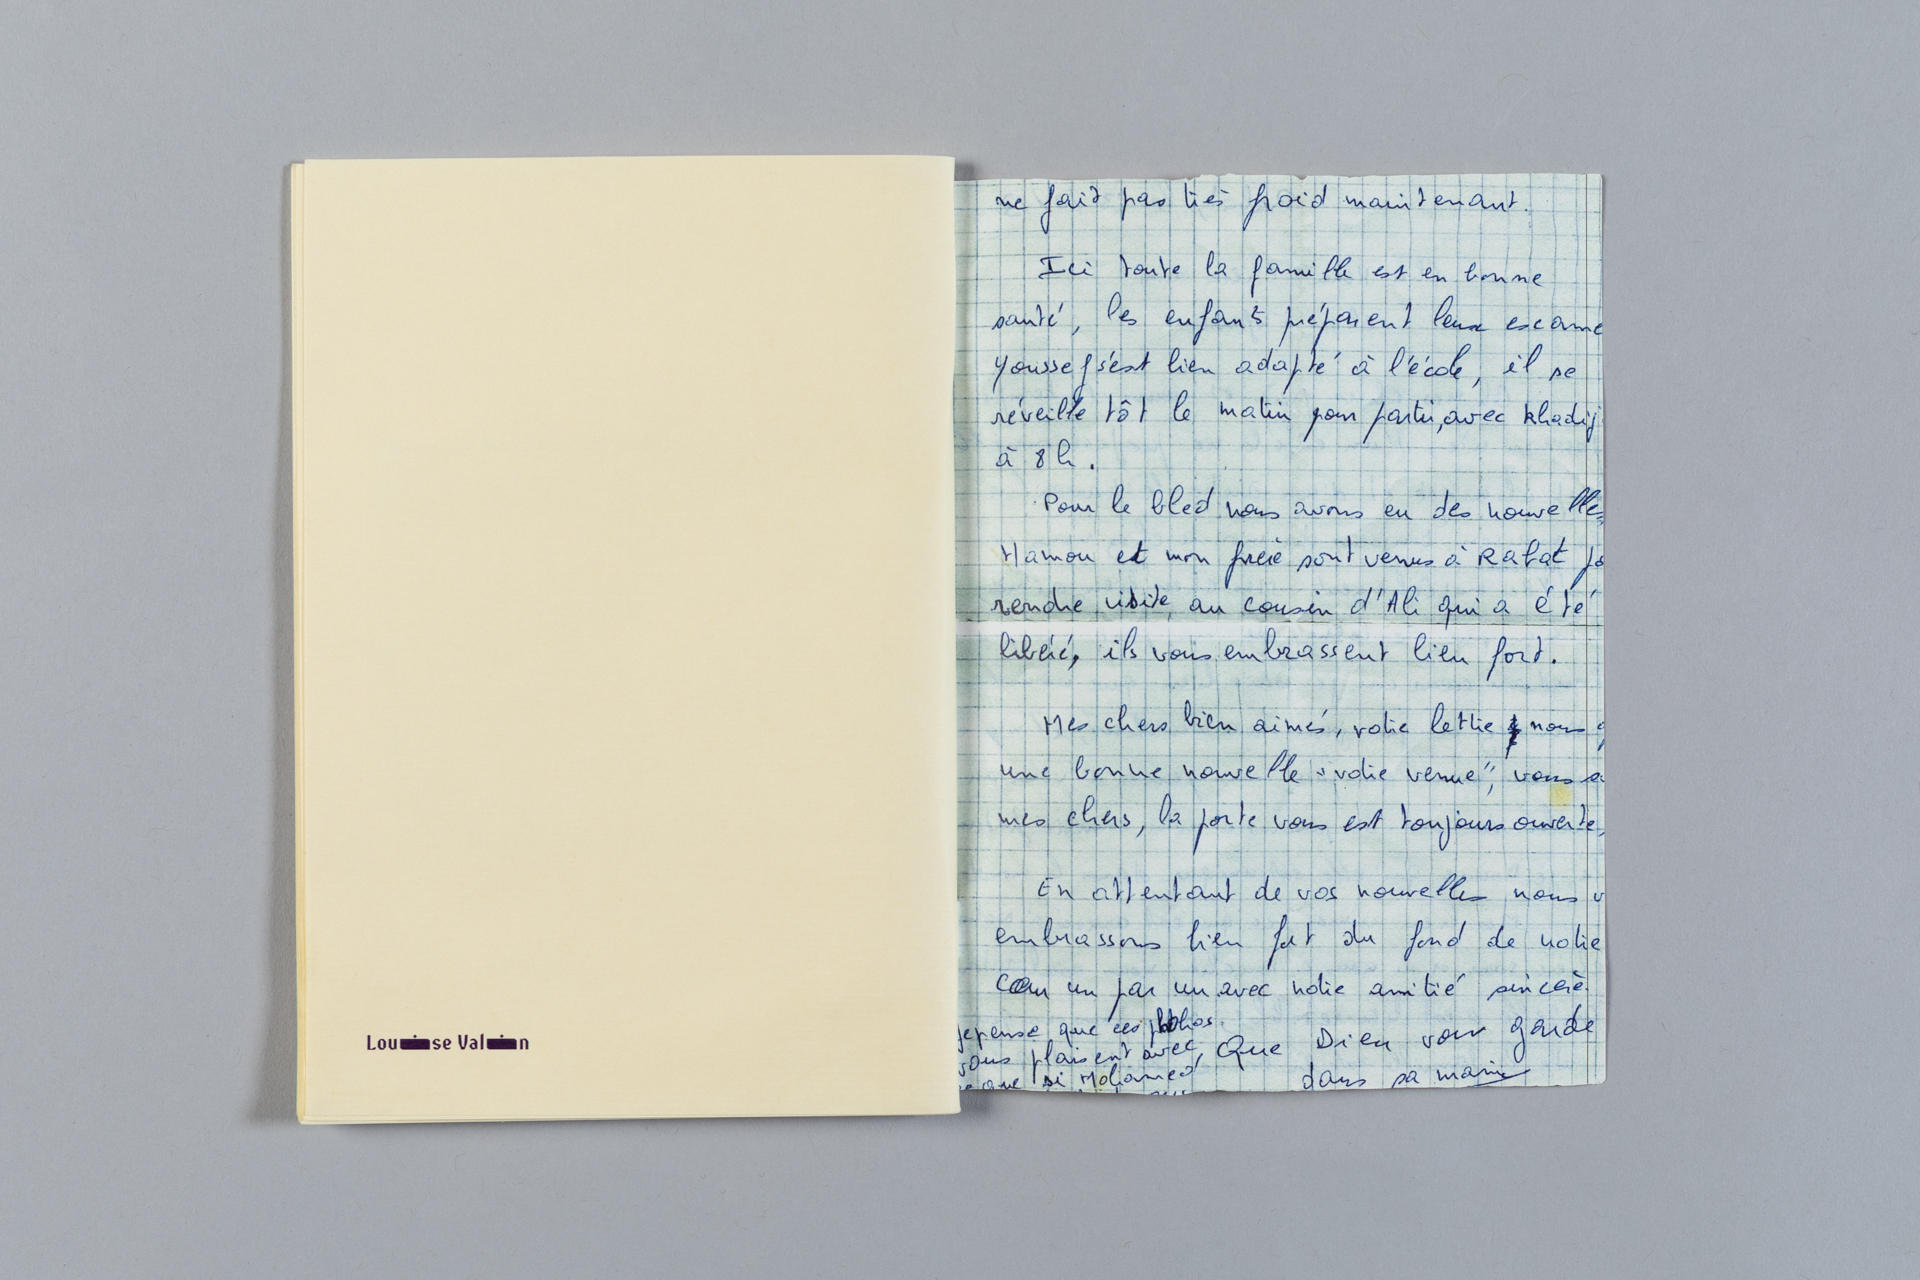 Lou se Val n
ne fait pas très froid maintenant.
Ici toute la famille est en bonne
santé, les enfants préparent leur
Youssef s'est bien adapté à l'école, il se
réveille tôt le matin pour partir, avec Khadij
à 8h.
Pour le bled nous avons eu des nouvelles
Hamou et mon frère sont venus à Rabat
rendre visite au cousin d'Ali qui a été
libéré, ils vous embrassent bien fort.
Mes chers bien aimés, votre lettre nous
une bonne nouvelle "votre venue", vous
mes chers, la porte vous est toujours ouverte,
En attentant de vos nouvelles nous
embrassons bien fort du fond de notre
cœur un par un avec notre amitié sincère.
je pense que ces photos
vous plaisent avec
que si Mohamed
Que Dieu vous garde
dans sa main